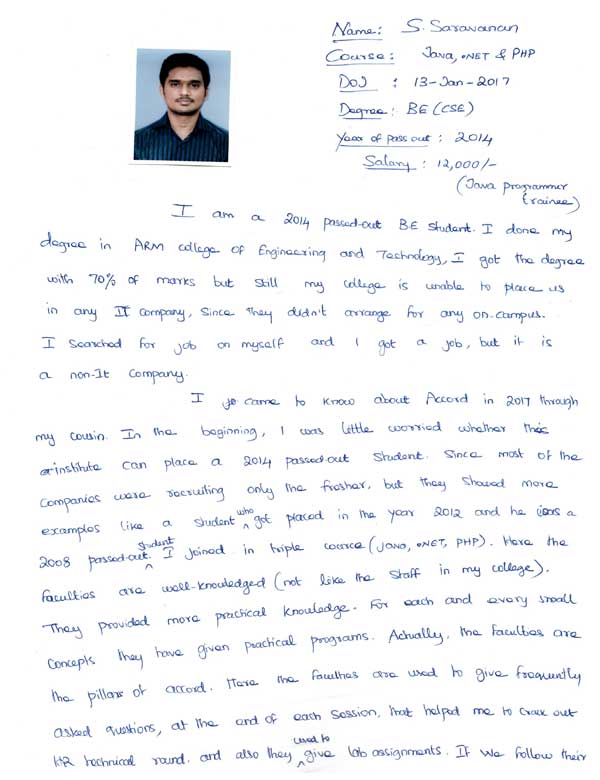 Name: S. Saravanan
Course: Java, .NET & PHP
DOJ : 13-Jan-2017
Degree: BE (CSE)
Year of pass out : 2014
Salary : 12,000/-
(Java programmer
trainee)
I am a 2014 passed-out BE student. I done my
degree in ARM college of Engineering and Technology, I got the degree
with 70% of marks but still my college is unable to place us
in any IT company, since they didn't arrange for any on-campus.
I searched for job on myself and I got a job, but it is
a non-It company.
I came to know about Accord in 2017 through
my cousin. In the beginning, I was little worried whether this
institute can place a 2014 passed-out student. Since most of the
companies were recruiting only the fresher, but they shared more
examples like a student who got placed in the year 2012 and he is a
2008 passed-out student. I joined in triple cource (Java, .NET, PHP). Here the
faculties are well-knowledged (not like the staff in my college).
They provided more practical knowledge. For each and every small
concepts they have given practical programs. Actually, the faculties are
the pillars of accord. Here the faculties are used to give frequently
asked qustions, at the end of each session, that helped me to crack out
HR technical round. and also they used to give lab assignments. If we follow their